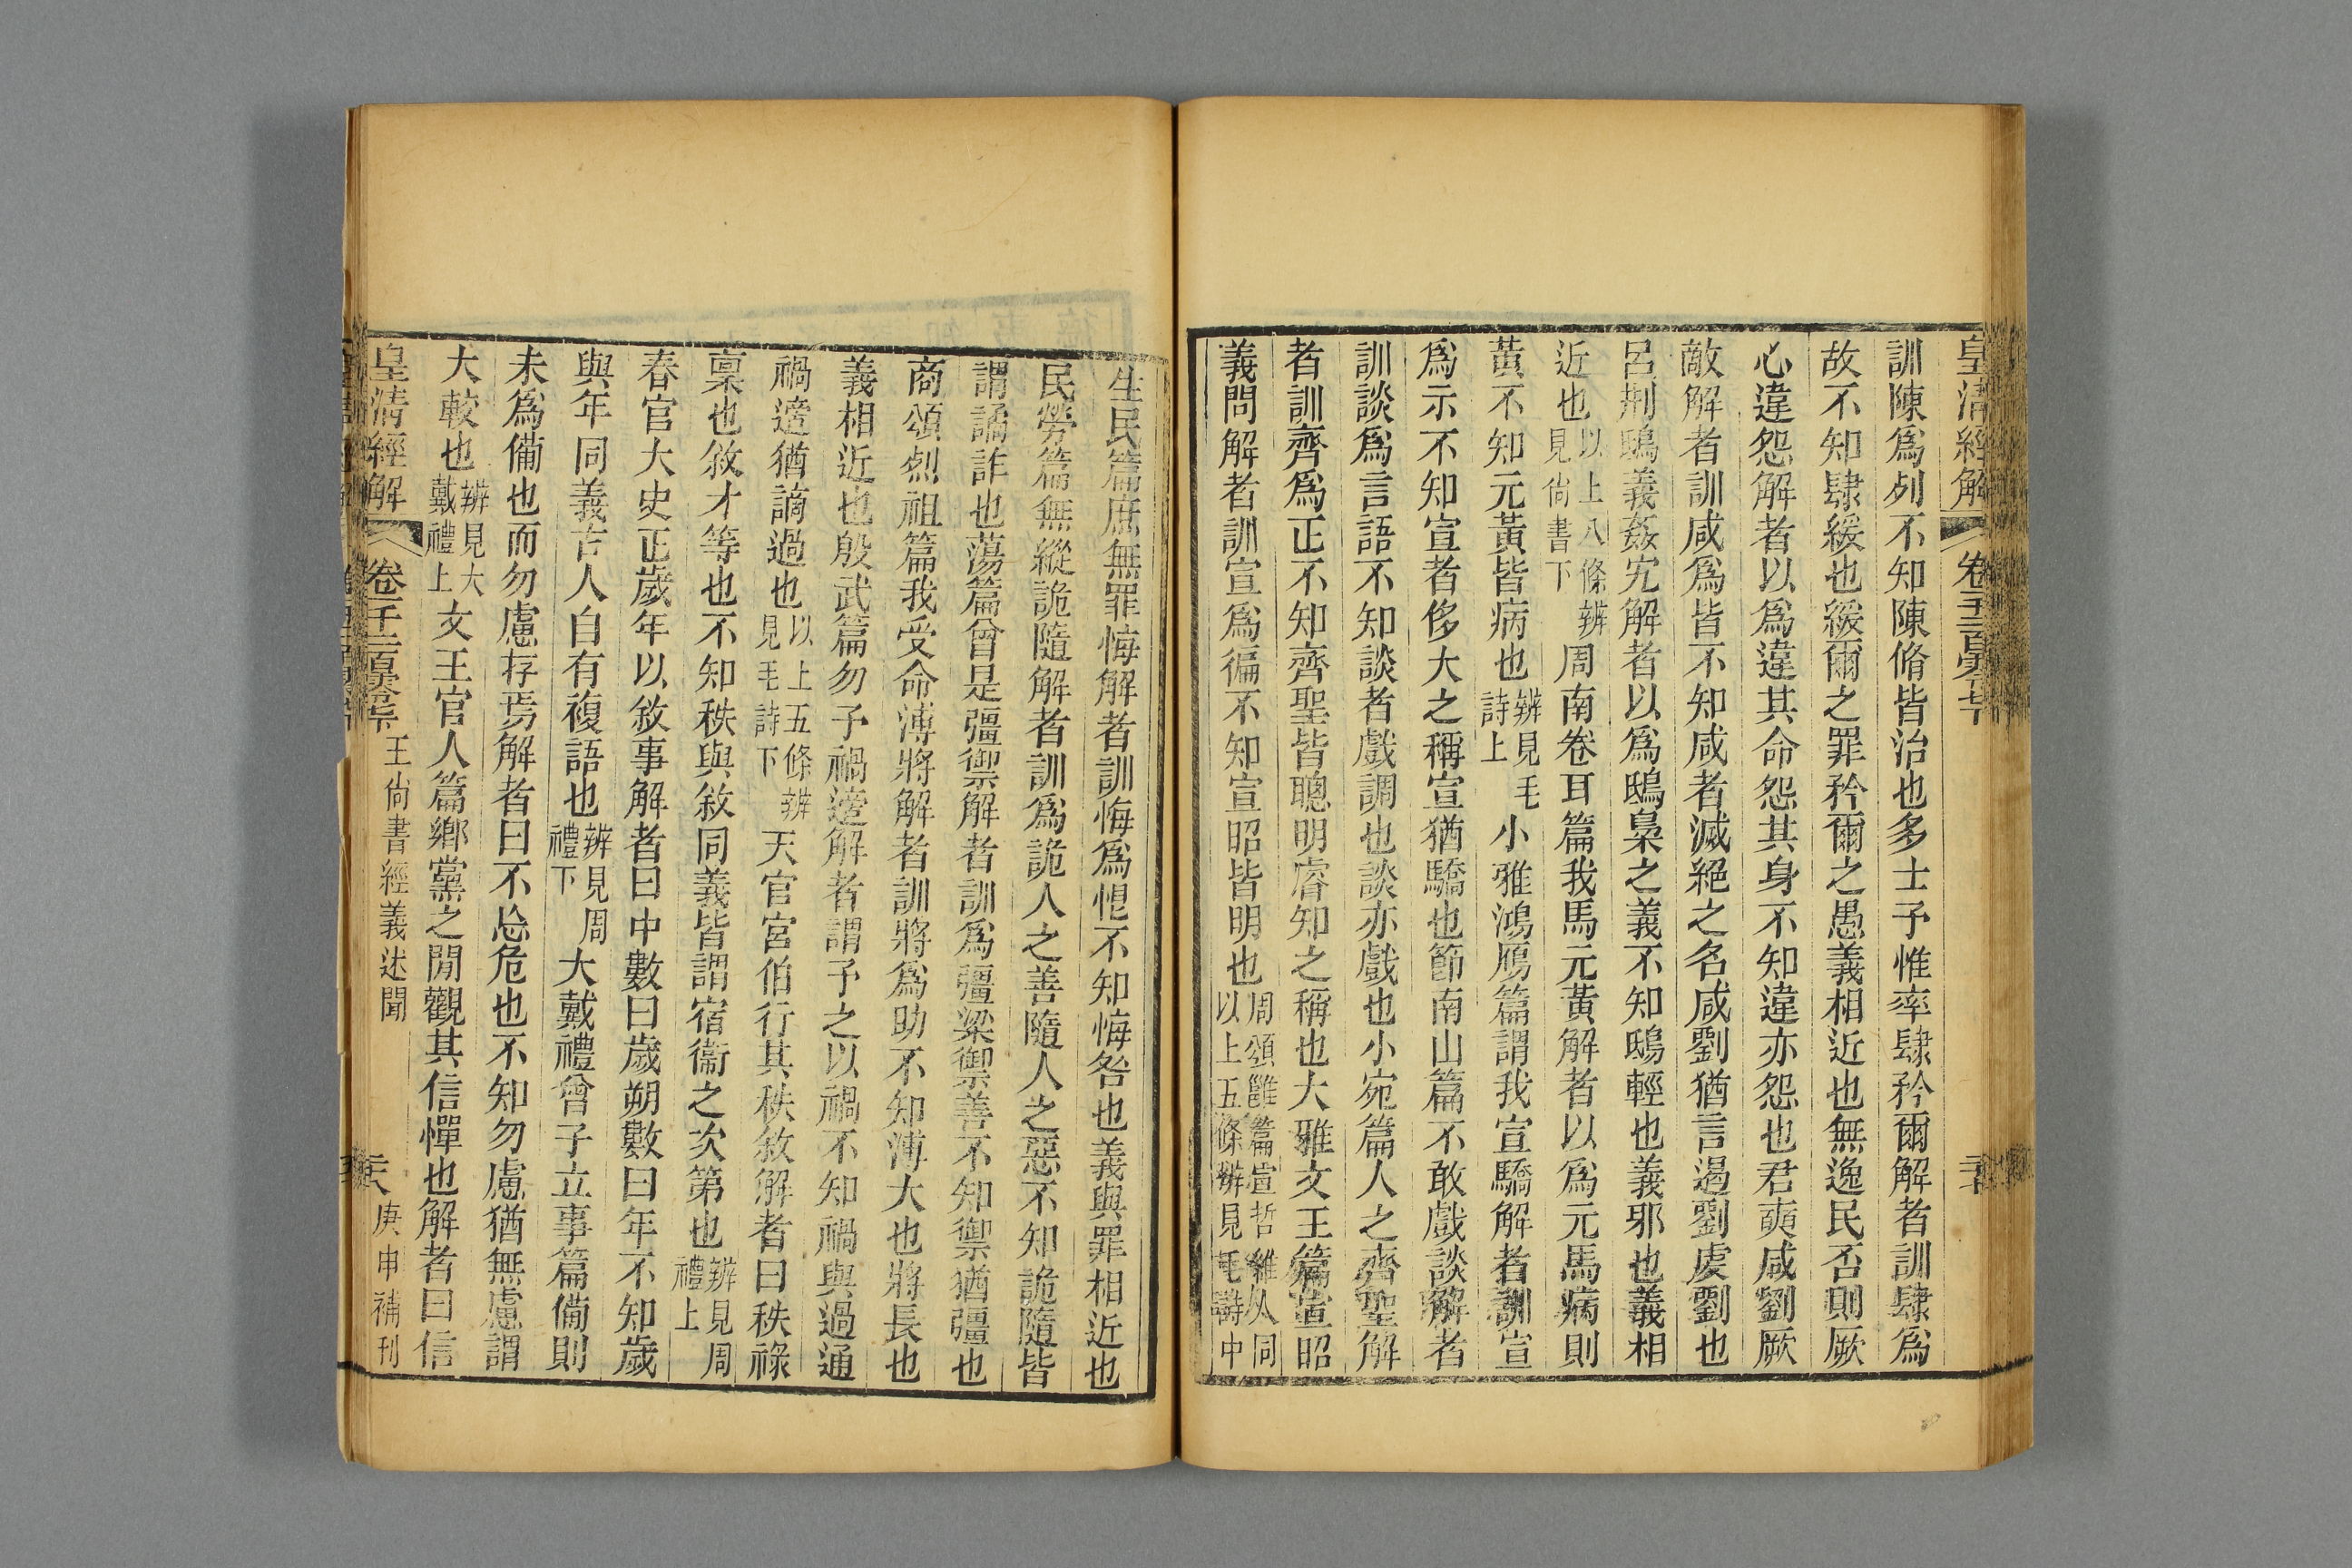 皇清經解 卷一千二百零七
訓陳爲列不知陳脩皆治也多士予惟率肆矜爾解者訓肆爲
故不知肆緩也緩爾之罪矜爾之愚義相近也無逸民否則厥
心違怨解者以爲違其命怨其身不知違亦怨也君奭咸劉厥
敵解者訓咸爲皆不知咸者滅絕之名咸劉猶言遏劉虔劉也
呂荆鴟義姦宄解者以爲鴟梟之義不知鴟輕也義邪也義相
近也以上八條辨見尙書下周南卷耳篇我馬元黃解者以爲元馬病則
黃不知元黃皆病也辨見毛詩上小雅鴻鴈篇謂我宣驕解者訓宣
爲示不知宣者侈大之稱宣猶驕也節南山篇不敢戲談解者
訓談爲言語不知談者戲調也談亦戲也小宛篇人之齊聖解
者訓齊爲正不知齊聖皆聰明睿知之稱也大雅文王篇宣昭
義問解者訓宣爲徧不知宣昭皆明也周頌雝篇宣哲維人同以上五條辨見毛詩中
生民篇庶無罪悔解者訓悔爲恨不知悔咎也義與罪相近也
民勞篇無縱詭隨解者訓爲詭人之善隨人之惡不知詭隨皆
謂譎詐也蕩篇曾是彊禦解者訓爲彊梁禦善不知禦猶彊也
商頌烈祖篇我受命溥將解者訓將爲助不知溥大也將長也
義相近也殷武篇勿予禍適解者謂予之以禍不知禍與過通
禍適猶謫過也以上五條辨見毛詩下天官宮伯行其秩敘解者曰秩祿
稟也敘才等也不知秩與敘同義皆謂宿衞之次第也辨見周禮上
春官大史正歲年以敘事解者曰中數曰歲朔數曰年不知歲
與年同義古人自有複語也辨見周禮下大戴禮曾子立事篇備則
未爲備也而勿慮存焉解者曰不忘危也不知勿慮猶無慮謂
大較也辨見大戴禮上文王官人篇鄉黨之閒觀其信憚也解者曰信
皇清經解 卷一千二百零七 王尙書經義述聞 庚申補刊